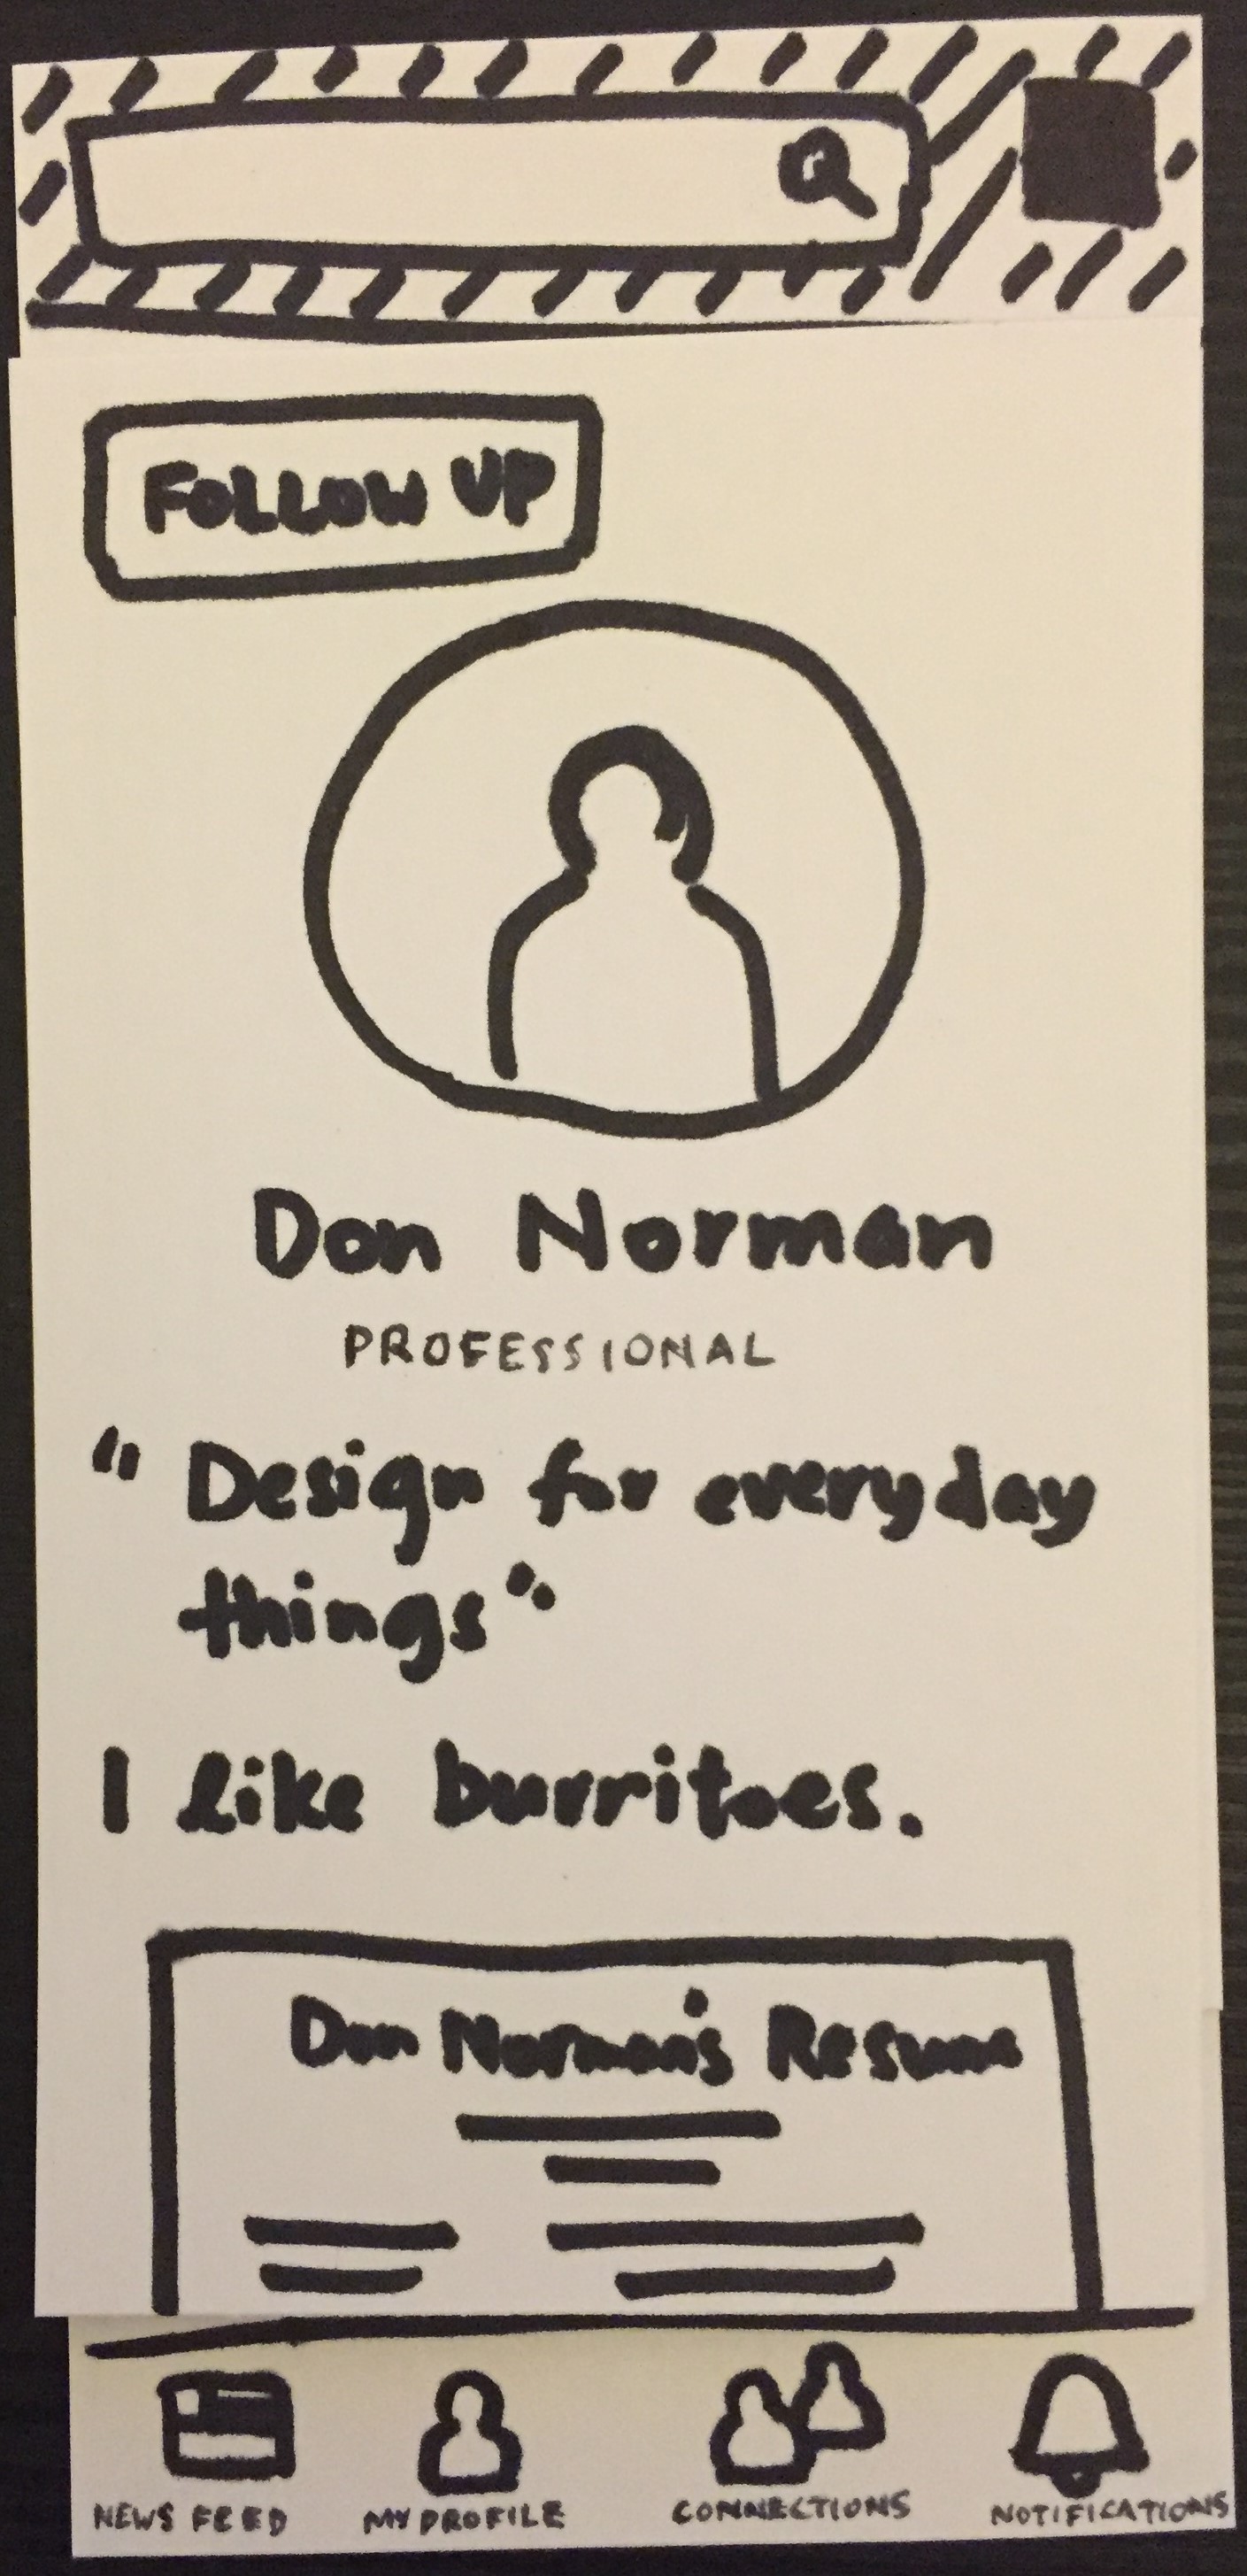 FOLLOW UP
Don Norman
PROFESSIONAL
"Design for everyday
things"
I like burritoes.
Don Norman's Resume
NEWS FEED
MY PROFILE
CONNECTIONS
NOTIFICATIONS